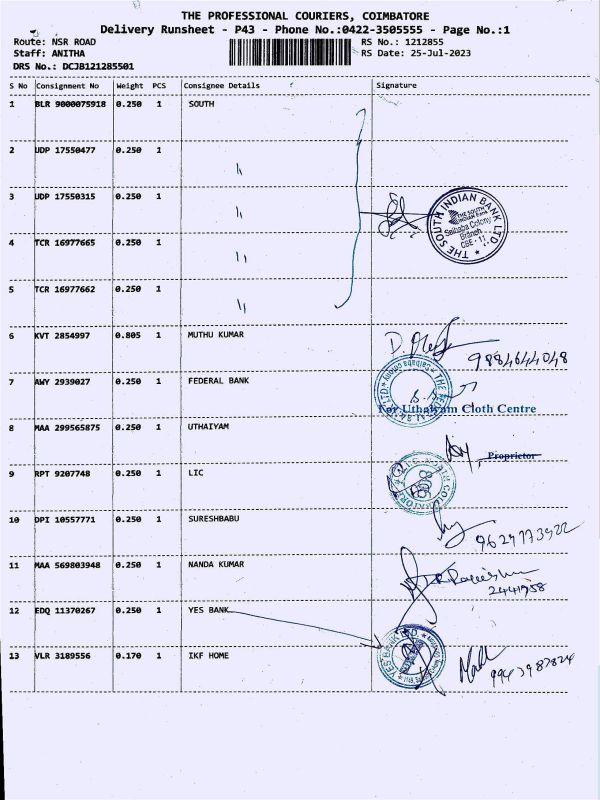 THE PROFESSIONAL COURIERS, COIMBATORE
Delivery Runsheet - P43 - Phone No.:0422-3505555 - Page No.:1
Route: NSR ROAD RS No.: 1212855
Staff: ANITHA RS Date: 25-Jul-2023
DRS No.: DCJB121285501
S No Consignment No Weight PCS Consignee Details Signature
1 BLR 9000075918 0.250 1 SOUTH
2 UDP 17550477 0.250 1 "
3 UDP 17550315 0.250 1 "
THE SOUTH INDIAN BANK LTD.
THE SOUTH INDIAN BANK
Saibaba Colony
Branch
CBE - 11
4 TCR 16977665 0.250 1 "
5 TCR 16977662 0.250 1 "
6 KVT 2854997 0.805 1 MUTHU KUMAR
9884644048
7 AWY 2939027 0.250 1 FEDERAL BANK
For Uthaiyam Cloth Centre
8 MAA 299565875 0.250 1 UTHAIYAM
Proprietor
9 RPT 9207748 0.250 1 LIC
10 DPI 10557771 0.250 1 SURESHBABU
9629773922
11 MAA 569803948 0.250 1 NANDA KUMAR
2441958
12 EDQ 11370267 0.250 1 YES BANK
YES BANK LTD.
13 VLR 3189556 0.170 1 IKF HOME
9943987824